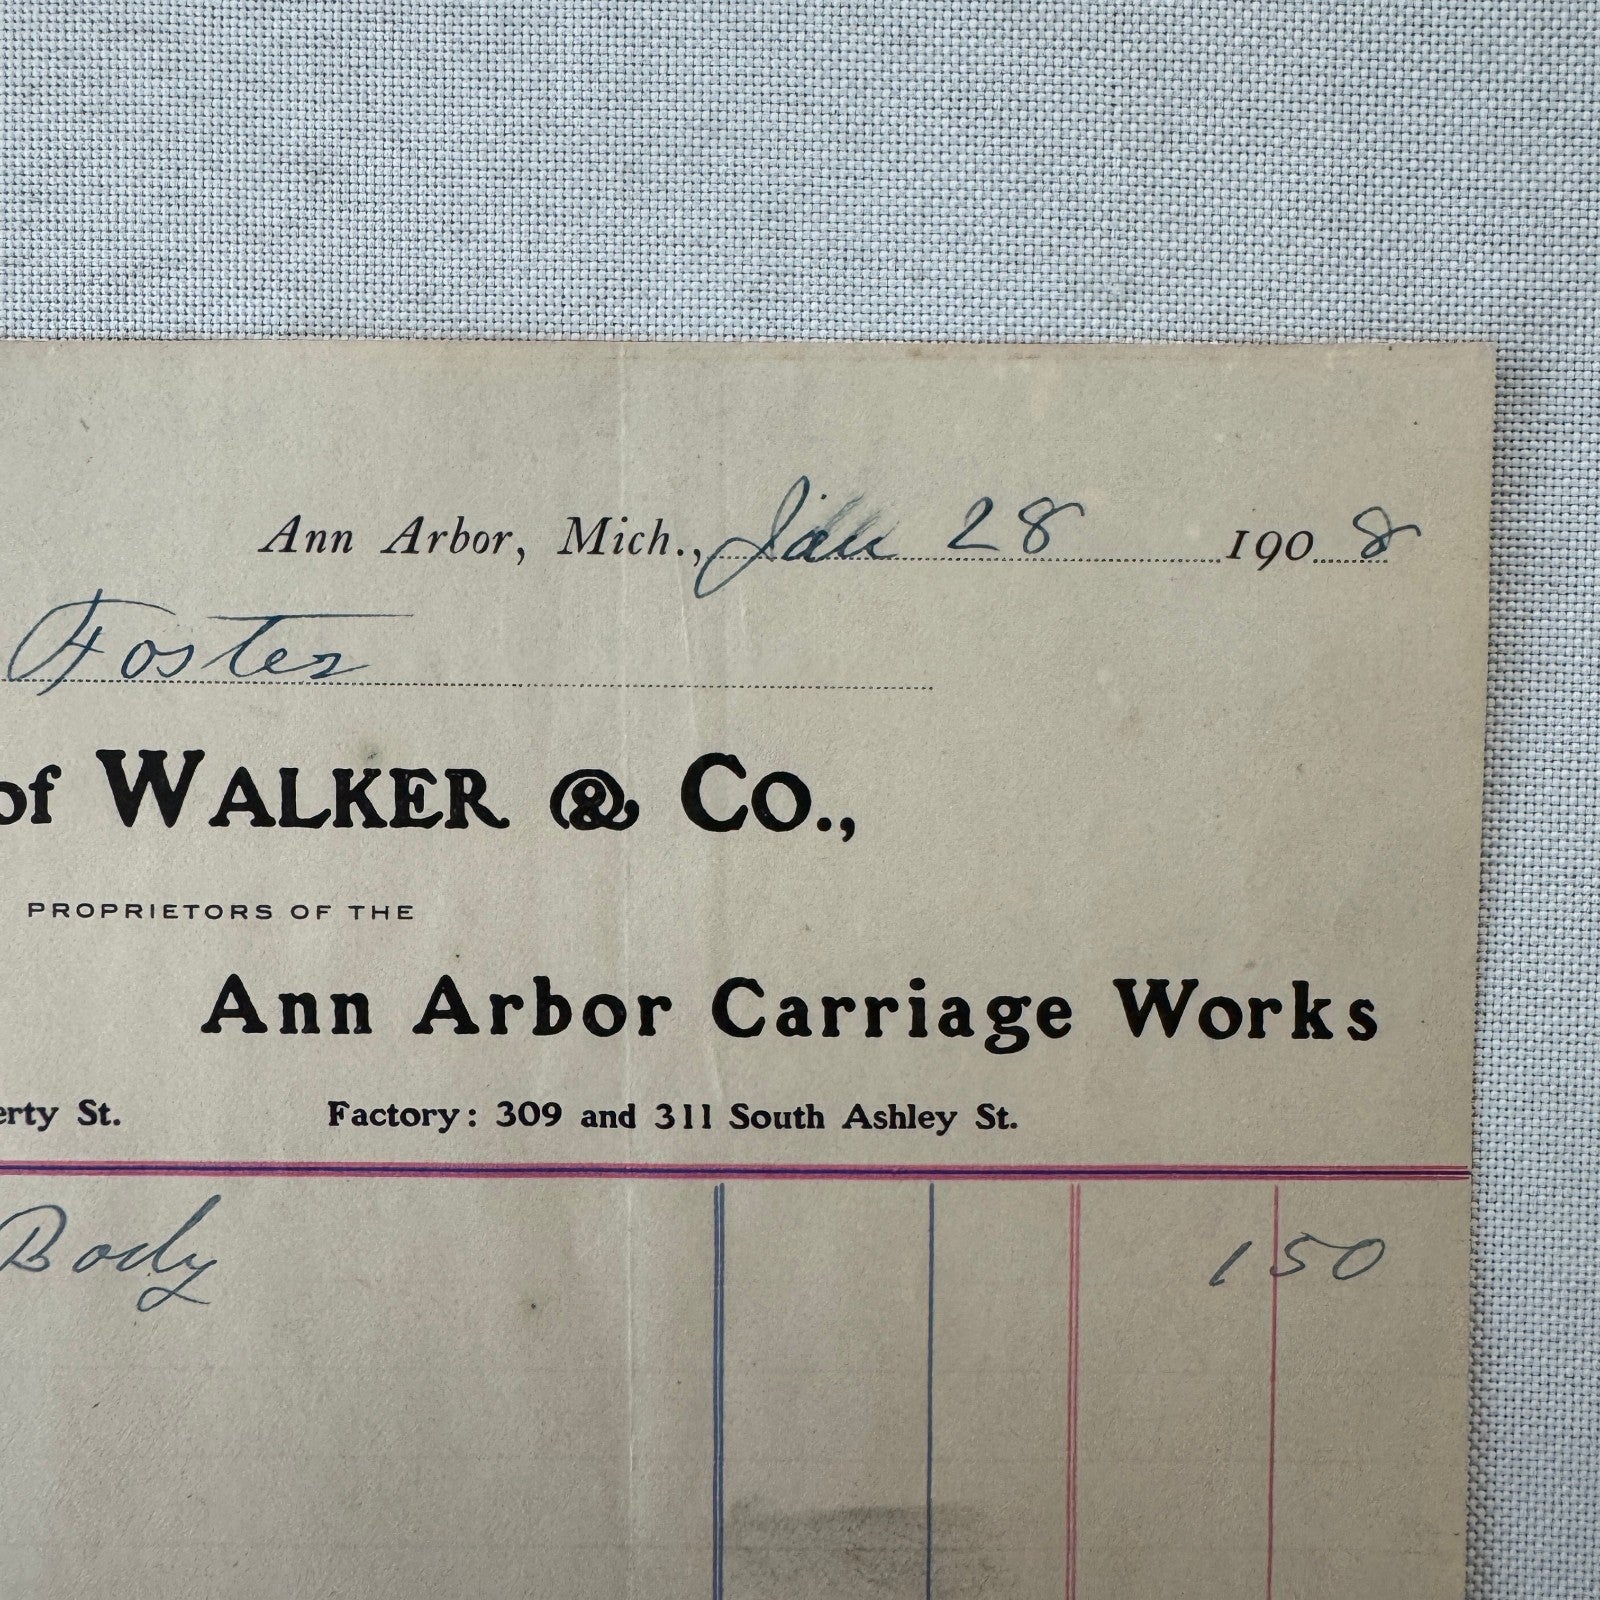 Ann Arbor, Mich., Jan 28 1908
Foster
of WALKER & CO.,
PROPRIETORS OF THE
Ann Arbor Carriage Works
erty St. Factory: 309 and 311 South Ashley St.
Body 1 50